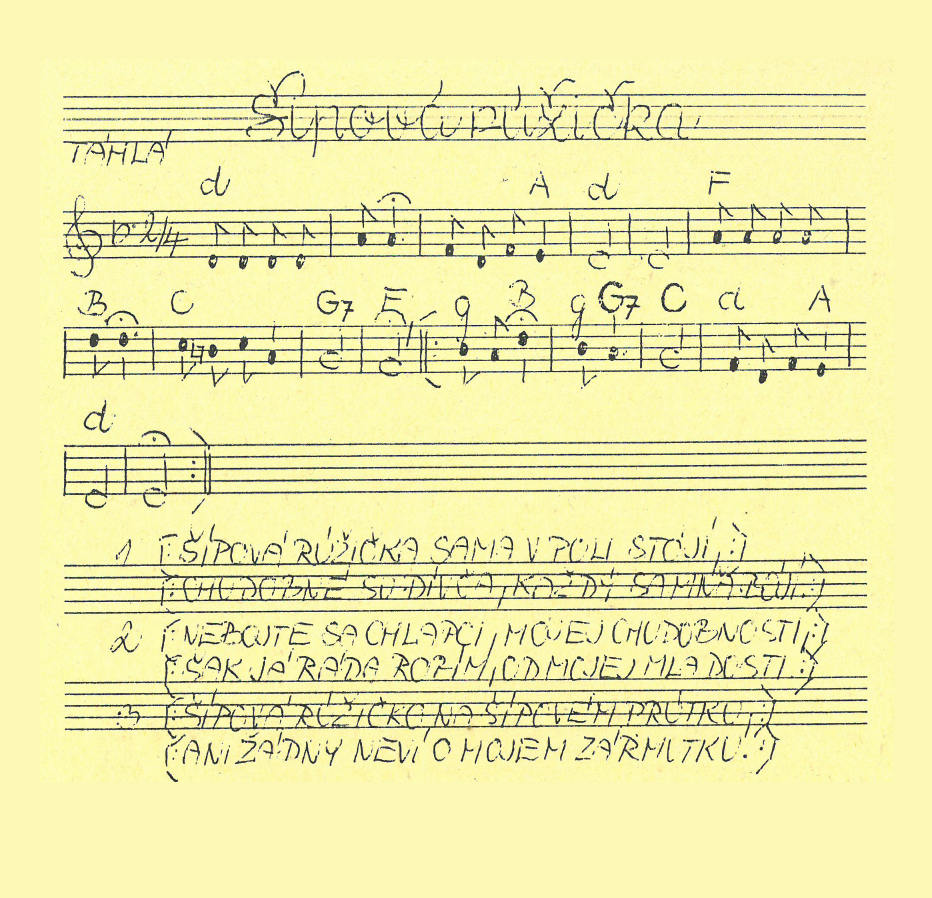 Šípová růžička
TÁHLÁ
2/4 d A d F
B C G7 F g B g G7 C d A
d
1 [: ŠÍPOVÁ RŮŽIČKA SAMA V POLI STOJÍ, :]
[: CHUDOBNÉ SU DÍVČA, KAŽDÝ SA MŇA BOJÍ. :]
2 [: NEBOJTE SA CHLAPCI, MOJEJ CHUDOBNOSTI, :]
[: ŠAK JÁ RÁDA ROBÍM, OD MOJEJ MLADOSTI. :]
3 [: ŠÍPOVÁ RŮŽIČKO NA ŠÍPOVÉM PRÚTKU, :]
[: ANI ŽÁDNY NEVÍ O MOJEM ZÁRMUTKU. :]